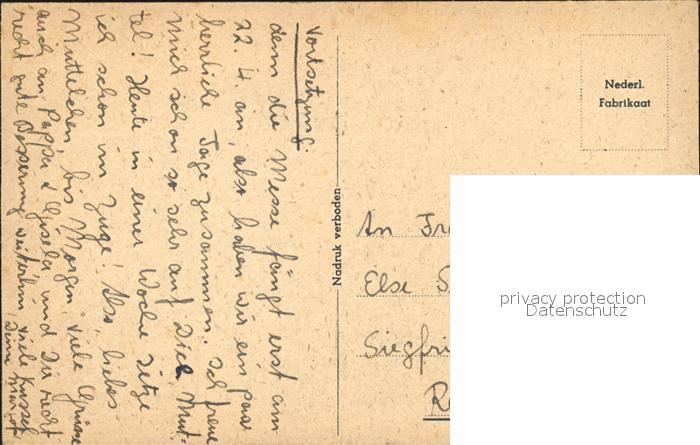 Vortsetzung
denn die Messe fängt erst am
22. 4. an, also haben wir ein paar
herrliche Tage zusammen. Ich freue
mich schon so sehr auf Dich Mut-
tel! Heute in einer Woche sitze
ich schon im Zuge! Also, liebes
Muttelchen, bis Morgen, viele Grüsse
auch an Pappa & Gisela und Dir recht
recht gute Besserung weiterhin viele Küsse
Deine
Nadruk verboden
Nederl.
Fabrikaat
An Fr
Else S
Siegfri
R
privacy protection
Datenschutz